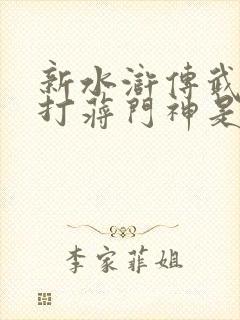 新水滸傳武
打蔣門神是
李家菲姐